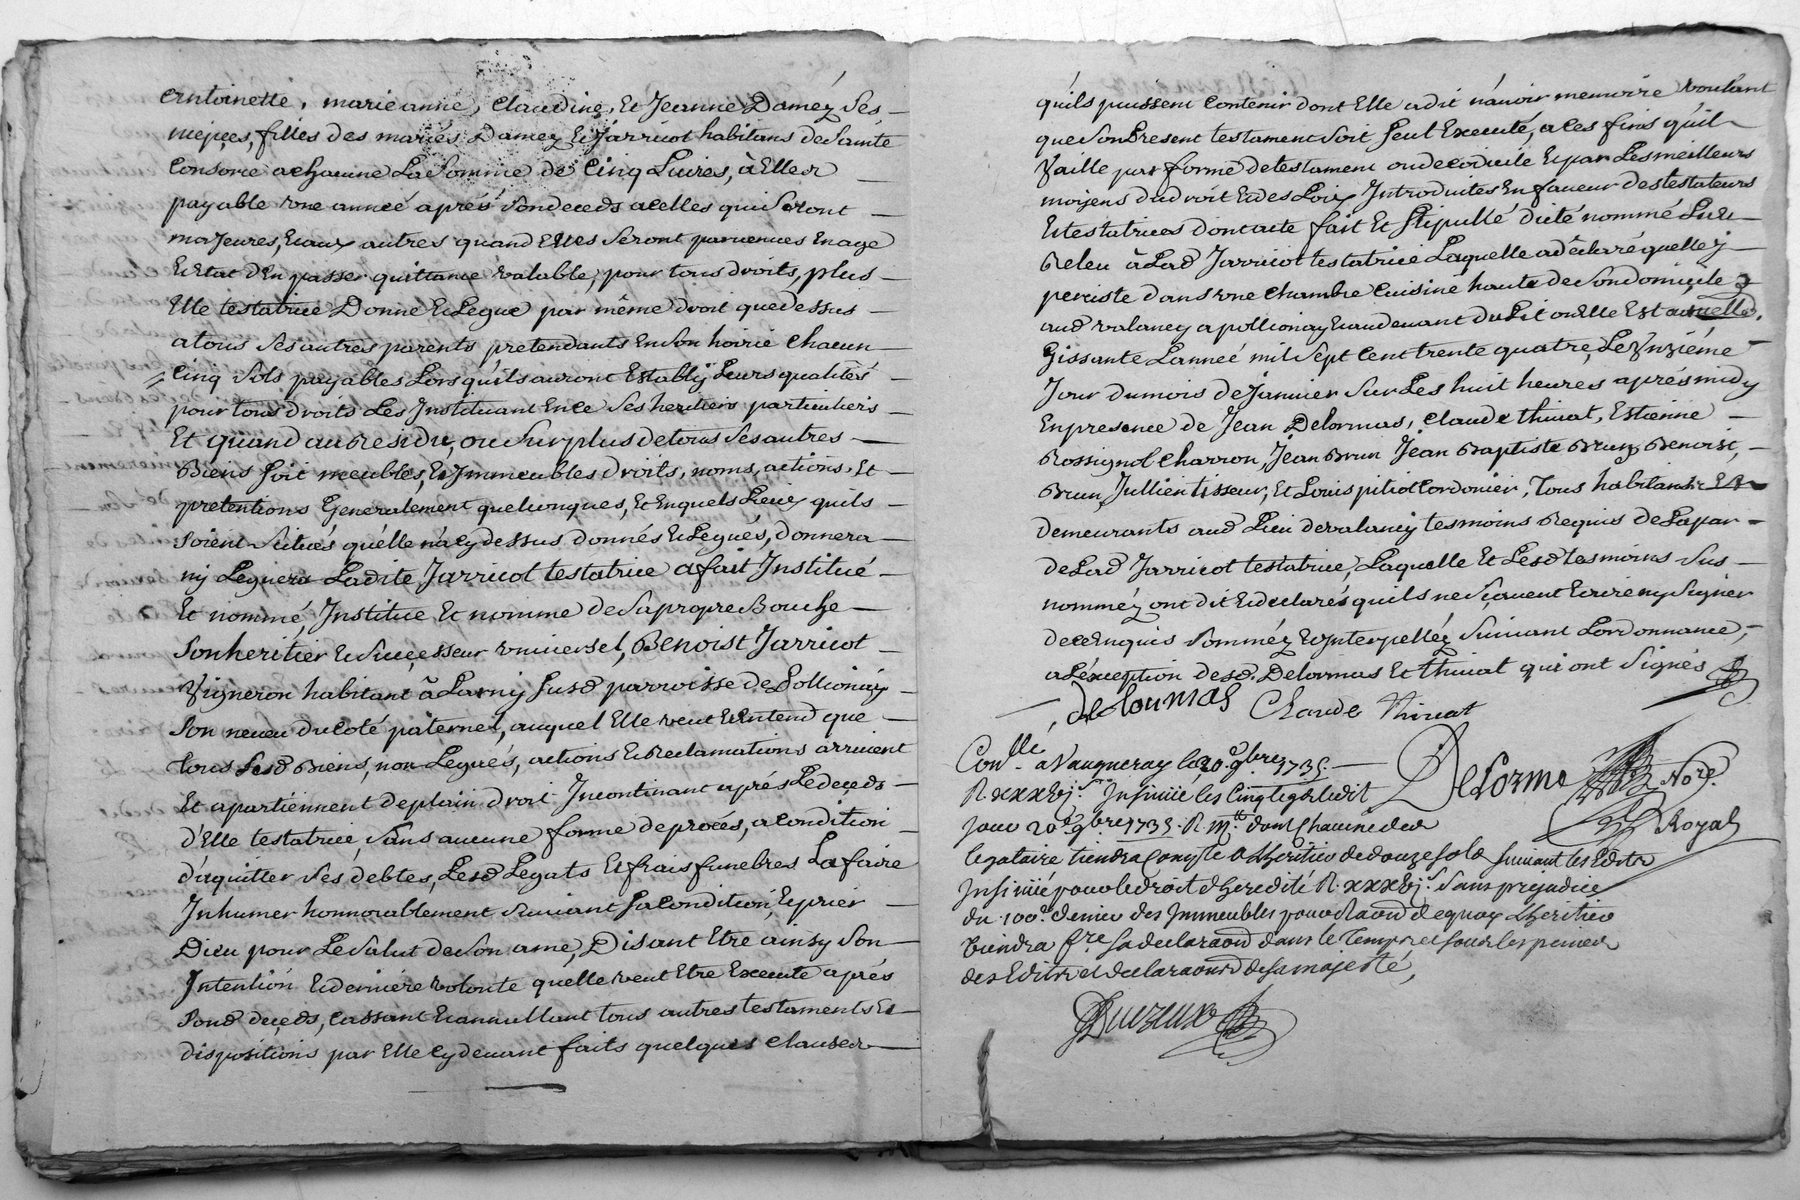 Antoinette, marieanne, Claudine, Et Jeanne Daméz Ses
niepçes, filles des mariés Damez Et Jarricot habitans de Sainte
Consorce a chacune La Somme de Cinq Livres, à Elles
payable une année aprés Son deceds a celles qui Seront
majeures, Et aux autres quand Elles Seront parvenues En age
Et Etat d'En passer quittance valable, pour tous droits, plus
Elle testatrice Donne Et Legue par même droit que dessus
a tous Ses autres parents pretendants En Son hoirie Chacun
Cinq Sols payables Lors qu'ils auront Establÿ Leurs qualités
pour tous droits Les Instituant En ce Ses heritiers particuliers
Et quand au residu, ou Surplus de tous Ses autres
Biens Soit meubles, Et Immeubles droits, noms, actions, Et
pretentions Generalement quelconques, Et En quels Lieux quils
Soient Scitués qu'élle n'a cy dessus donnés Et Legués, donnera
ny Leguera Ladite Jarricot testatrice a fait Institué
Et nommé, Institue Et nomme de Sa propre Bouche
Son heritier Et Sucçesseur universel, Benoist Jarricot
Vigneron habitant à Larny Susd parroisse de Pollionnay
Son neveu du Coté paternel, auquel Elle veut Et Entend que
tous Sesd Biens, non Legués, actions Et Reclamations arrivent
Et apartiennent de plain droit Incontinant aprés Le deçeds
d'Elle testatrice, Sans aucune forme de procés, a condition
d'aquitter Ses debtes, Lesd Legats Et frais funebres La faire
Inhumer honnorablement Suivant Sa Condition, Et prier
Dieu pour Le Salut de Son ame, Disant Etre ainsy Son
Intention Et derniere volonté quelle veut Etre Executé aprés
Sond deçeds, Cassant Et annullant tous autres testaments Et
dispositions par Elle Cy devant faits quelques Clauses
quils puissent Contenir dont Elle a dit n'avoir memoire voulant
que Son Présent testament Soit Seul Executé, a ces fins qu'il
Vaille par forme de testament ou de codicile Et par Les meilleurs
moyens du droit Et des Loix Introduites En faveur des testateurs
Et testatrices dont acte fait Et Stipullé dicté nommé Leu
Releu à Lad Jarricot testatrice Laquelle a déclaré quelle ÿ
perciste dans une chambre Cuisine haute de Son domicile
aud Valancy a pollionay Et au devant du Lit ou Elle Est actuellem
Gissante L'anneé mil Sept Cent trente quatre, Le Unziéme
Jour du mois de Janvier Sur Les huit heures aprés midy
En presence de Jean Delormas, Claude thivat, Estienne
Rossignol Charron, Jean Brun Jean Baptiste Brun, Benoist,
Brun, Jullien tisseur, Et Louis pitiot Cordonier, tous habitans Et
demeurants aud Lieu de Valancy tesmoins Requis de La par
de Lad Jarricot testatrice, Laquelle Et Lesd tesmoins Sus
nommèz ont dit Et declarés quils ne Sçavent Ecrire ny Signer
de ce Enquis Sommèz Et Interpellèz Suivant Lordonnance,
a Léxception desd. Delormas Et thivat qui ont Signés
delourmas Claude Thivat
Conllé a Vaugneray le 20e 9bre 1735
R xxxvjs Insinué les Cinq legs ledit
jour 20e 9bre 1735 R mtt dont Chacune des
legataire tiendra Compte a Lheritier de douze sols suivant les Edits
Insinué pour le droit dheredité R. xxxvjs Sans prejudice
du 100e denier des Immeubles pour raon de quoy Lheritier
viendra fre sa declaraon dans le temps et sous les peines
des Edits et declaraons de sa majesté,
Delorme Nore
Royal